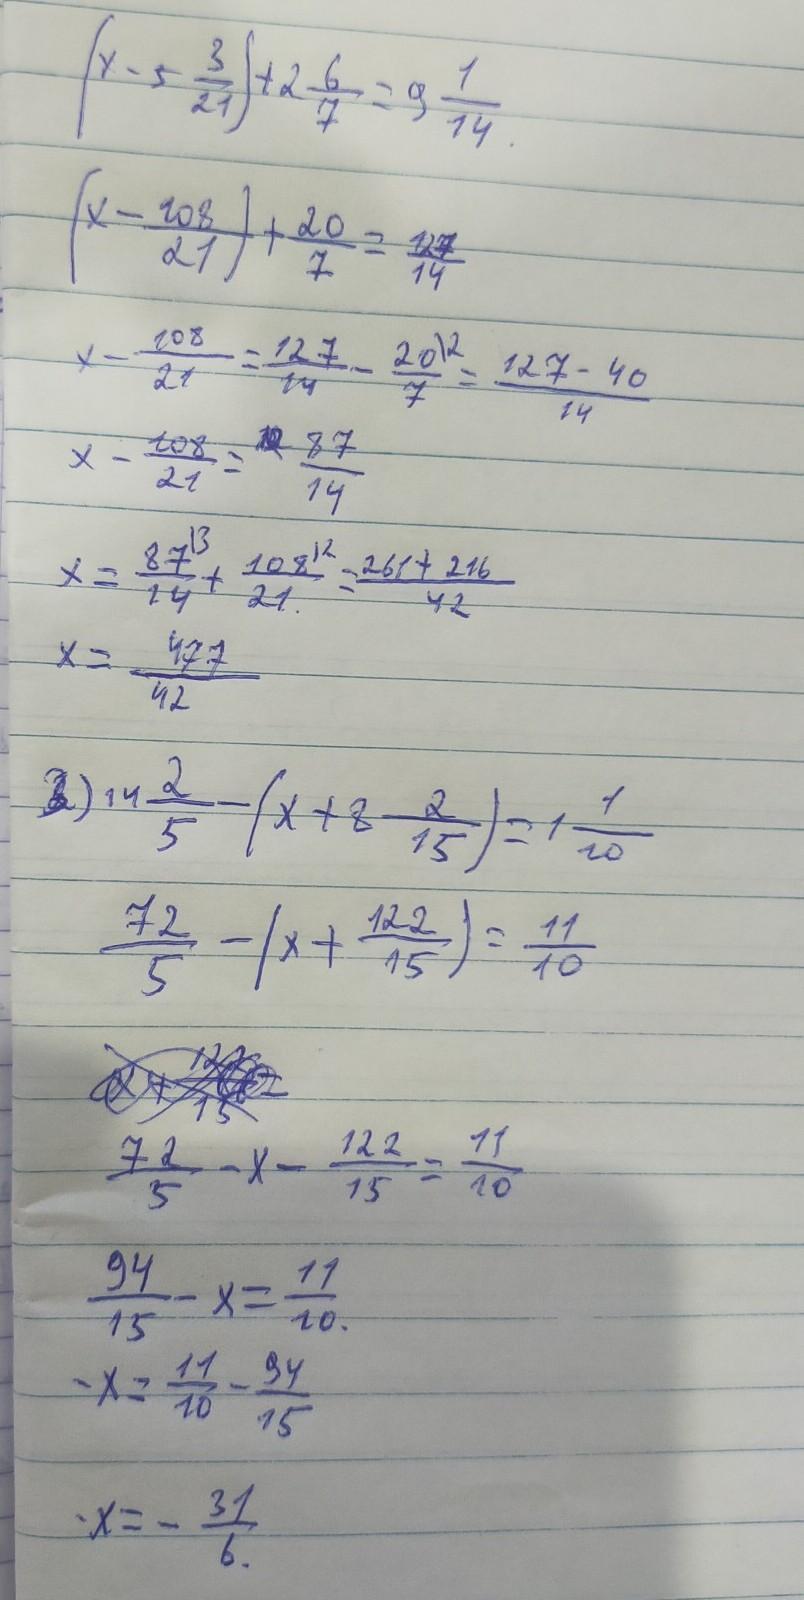 (x - 5 3/21) + 2 6/7 = 9 1/14.
(x - 108/21) + 20/7 = 127/14
x - 108/21 = 127/14 - 20\2/7 = 127 - 40/14
x - 108/21 = 87/14
x = 87\3/14 + 108\2/21. = 261 + 216/42
x = 477/42
2) 14 2/5 - (x + 8 2/15) = 1 1/10
72/5 - (x + 122/15) = 11/10
72/5 - x - 122/15 = 11/10
94/15 - x = 11/10.
-x = 11/10 - 94/15
-x = - 31/6.